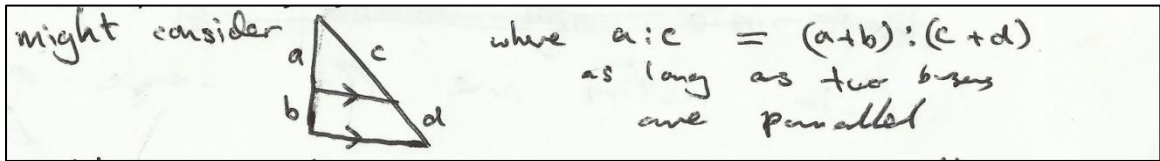 might consider
a
c
b
d
where a:c = (a+b):(c+d)
as long as two bases
are parallel